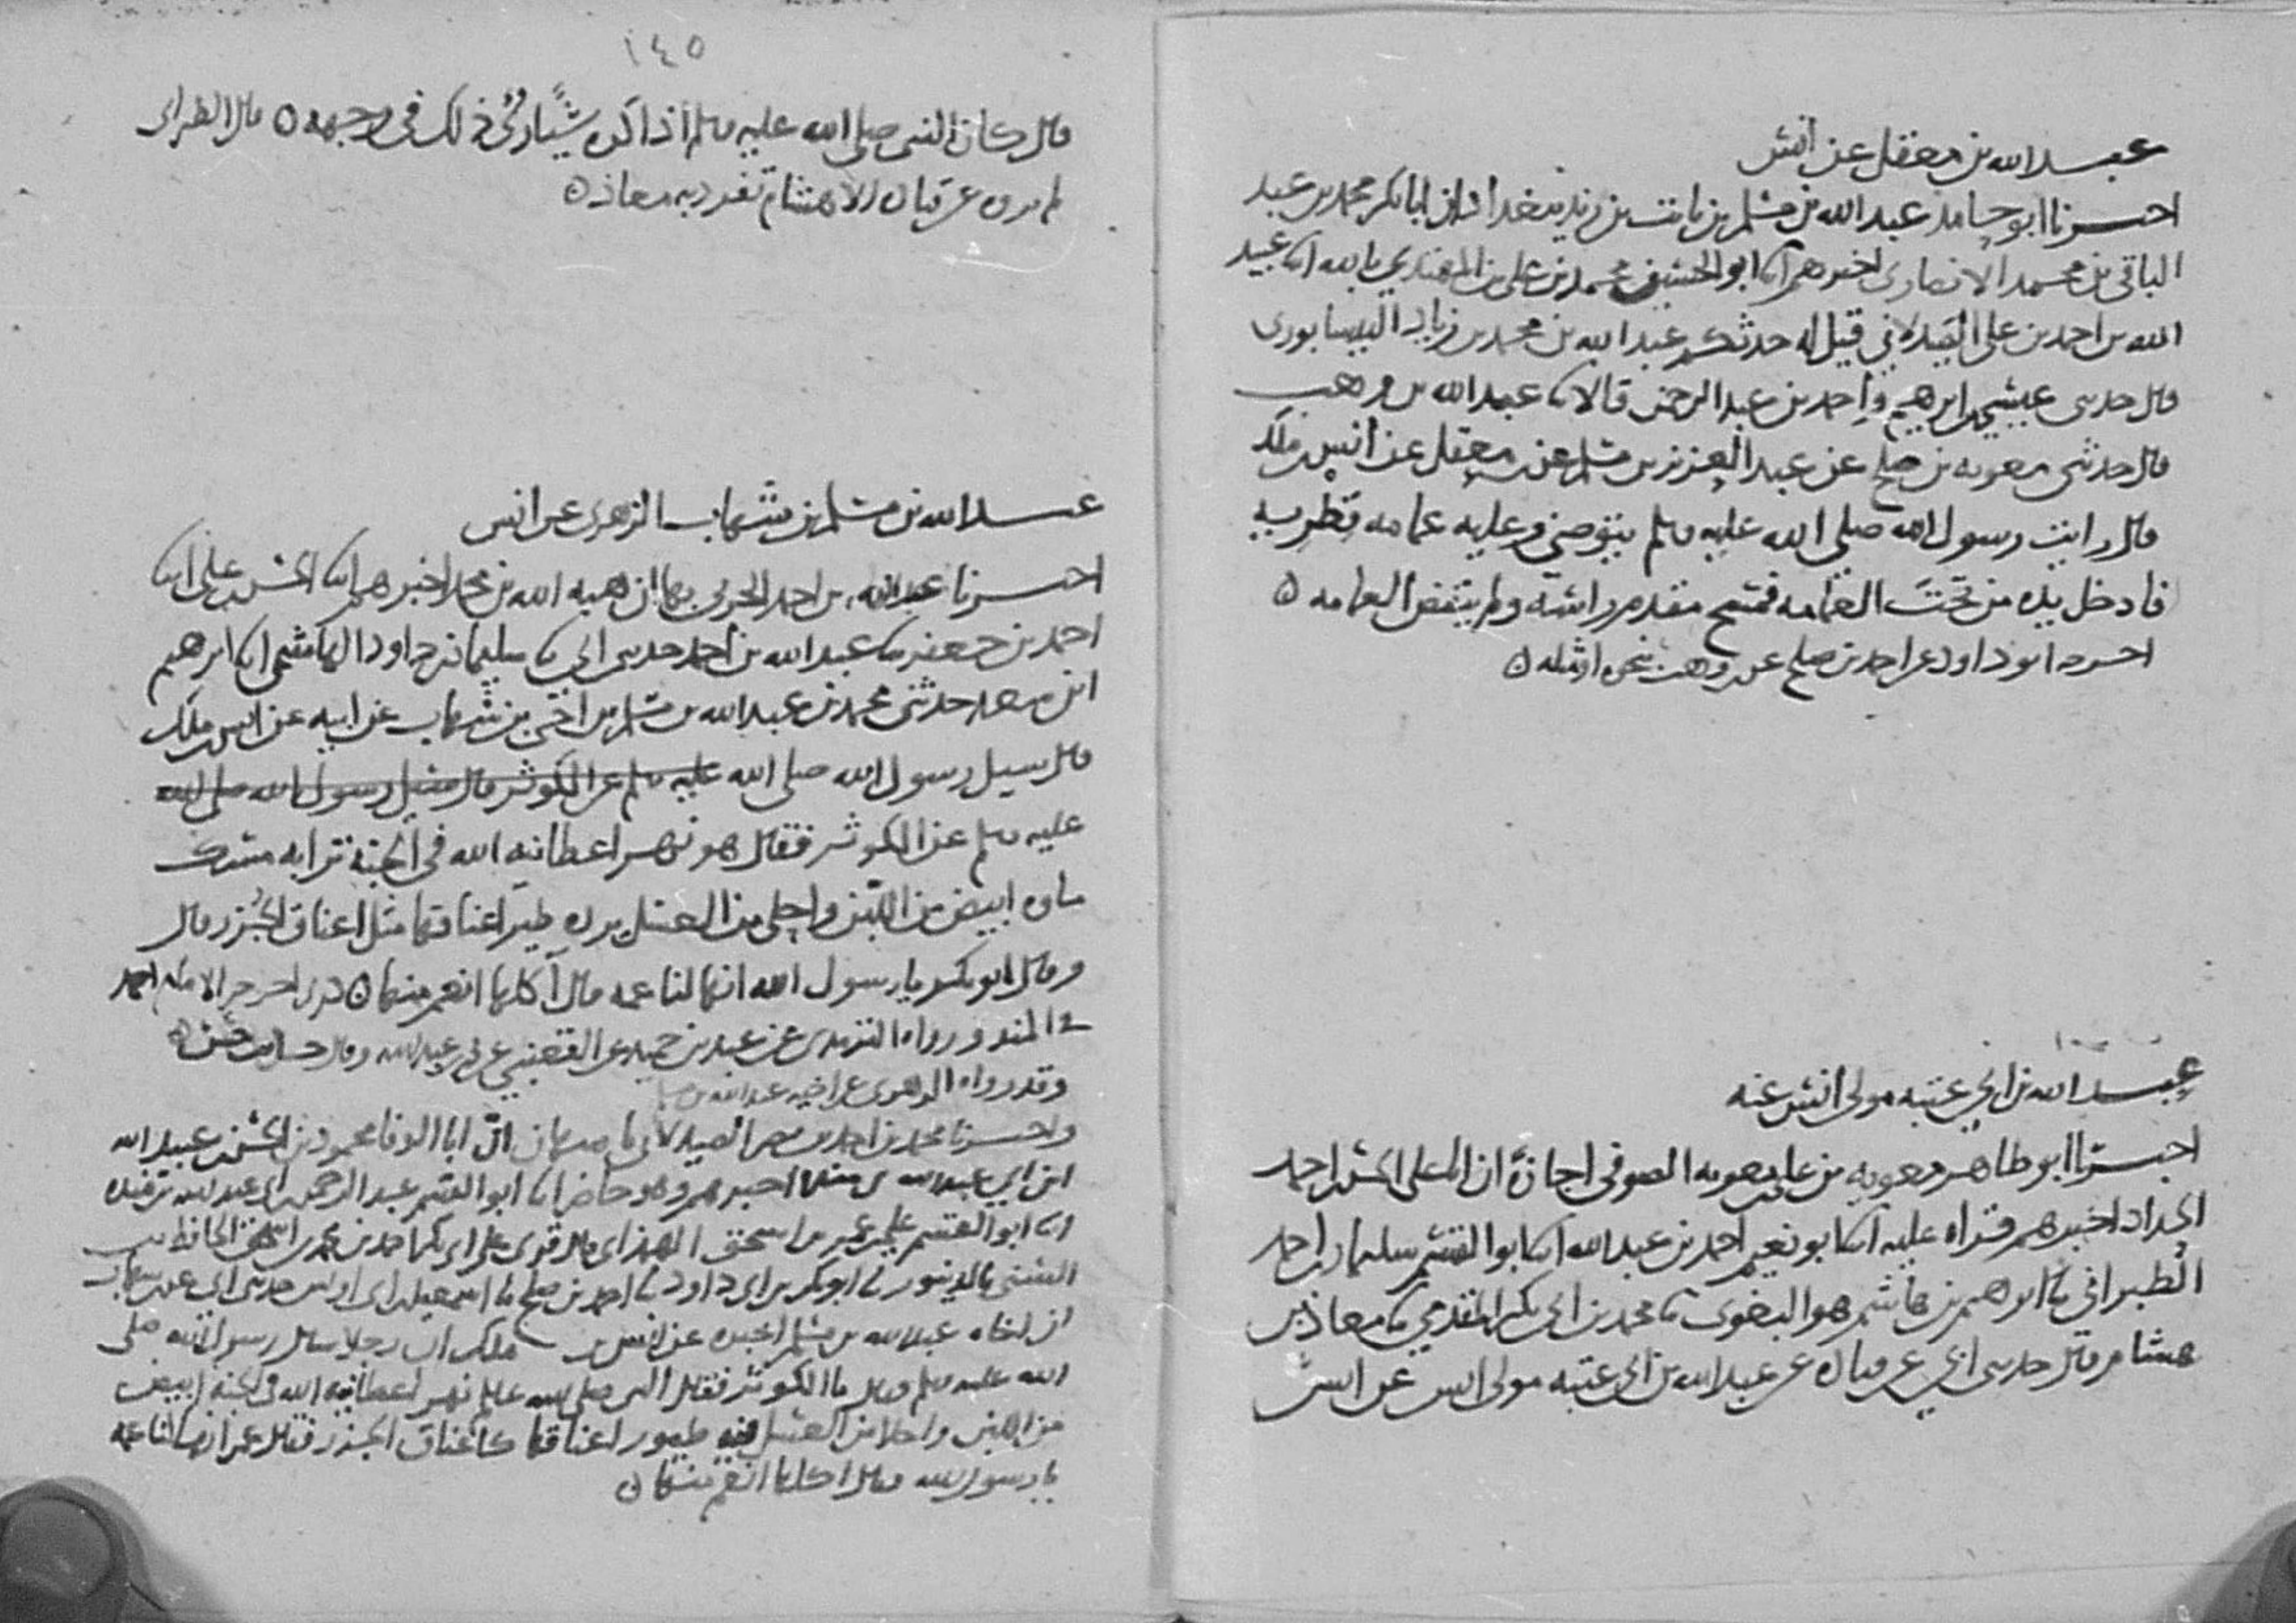 عبد الله بن معقل عن انس
اخبرنا ابو حامد عبد الله بن مسلم بن ثابت بن زيد ببغداد ان ابا بكر محمد بن عبد
الباقي بن محمد الانصاري اخبرهم ابنا ابو الحسين محمد بن علي بن المهتدي بالله ابنا عبيد
الله بن احمد بن علي الصيدلاني قيل له حدثكم عبد الله بن محمد بن زياد النيسابوري
قال حدثني عيسى بن ابرهيم واحمد بن عبد الرحمن قالا ثنا عبد الله بن وهب
قال حدثني معويه بن صلح عن عبد العزيز بن مسلم عن معقل عن انس بن ملك
قال رايت رسول الله صلى الله عليه وسلم يتوضئ وعليه عمامه قطريه
فادخل يده من تحت العمامه فمسح مقدم راسه ولم ينقض العمامه ٥
اخرجه ابو داود عن احمد بن صلح عن وهب نحوه او مثله ٥
عبد الله بن ابي عتبه مولى انس عنه
اخبرنا ابو طاهر معويه بن علي بن معويه الصوفي اجازة ان ابا علي الحسن بن احمد
الحداد اخبرهم قراه عليه ابنا ابو نعيم احمد بن عبد الله ابنا ابو القسم سليمان بن احمد
الطبراني ثنا ابرهيم بن هاشم هو البغوي ثنا محمد بن ابي بكر المقدمي ثنا معاذ بن
هشام قال حدثني ابي عن قتاده عن عبد الله بن ابي عتبه مولى انس عن انس
١٤٥
قال كان النبي صلى الله عليه وسلم اذا كره شيا رئى ذلك في وجهه ٥ قال الطبراني
لم يروه عن قتاده الا هشام تفرد به معاذ ٥
عبد الله بن مسلم بن شهاب الزهري عن انس
اخبرنا عبد الله بن احمد الحربي بها ان هبه الله بن محمد اخبرهم ابنا الحسن بن علي ابنا
احمد بن جعفر ثنا عبد الله بن احمد حدثني ابي ثنا سليمان بن داود الهاشمي ابنا ابرهيم
ابن سعد حدثني محمد بن عبد الله بن مسلم بن اخي بن شهاب عن ابيه عن انس بن ملك
قال سيل رسول الله صلى الله عليه وسلم عن الكوثر قال سيل رسول الله صلى الله
عليه وسلم عن الكوثر فقال هو نهر اعطانيه الله في الجنة ترابه مسك
ماوه ابيض من اللبن واحلى من العسل يرده طير اعناقها مثل اعناق الجزر قال
وقال ابو بكر يا رسول الله انها لناعمه قال آكلها انعم منها ٥ كذى اخرجه الامام احمد
في المسند ورواه الترمذي عن عبد بن حميد عن القعنبي عن محمد بن عبد الله وقال حديث حسن ٥
وقد رواه الزهري عن اخيه عبد الله بن
واخبرنا محمد بن احمد بن نصر الصيدلاني باصبهان ان ابا الوفا محمود بن الحسن بن عبد الله
ابن ابي عبد الله بن منده اخبرهم وهو حاضر ابنا ابو القسم عبد الرحمن بن ابي عبد الله بن منده
ابنا ابو القسم علي بن عمر بن اسحق الهمذاني قال قرى على ابي بكر احمد بن محمد بن اسحق الحافظ
السني بالدينور ثنا ابو بكر بن ابي داود ثنا احمد بن صلح ثنا اسمعيل بن ابي اويس حدثني ابي عن بن شهاب
ان اخاه عبد الله بن مسلم اخبره عن انس بن ملك ان رجلا سال رسول الله صلى
الله عليه وسلم وقال ما الكوثر فقال النبي صلى الله عليه وسلم نهر اعطانيه الله في الجنه ابيض
من اللبن واحلا من العسل فيه طيور اعناقها كاعناق الجزر فقال عمر انها لناعمه
يا رسول الله فقال اكلها انعم منها ٥